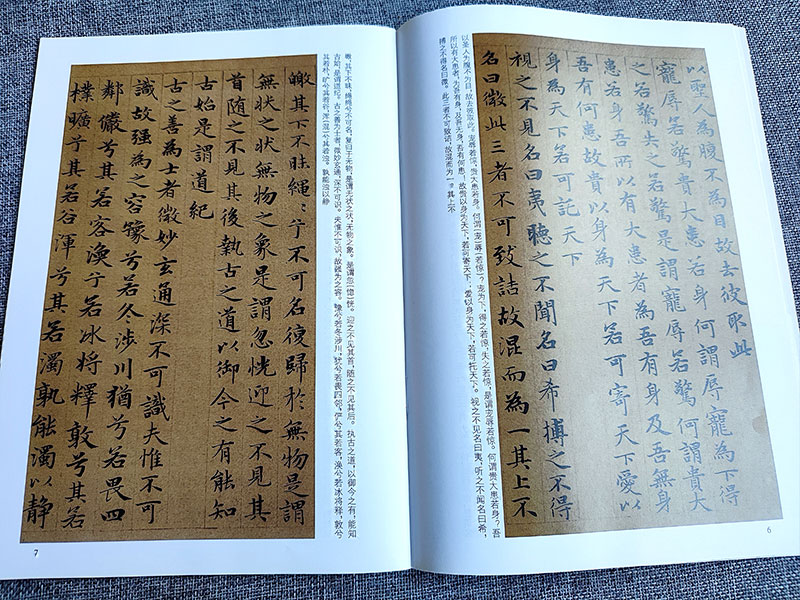 以聖為腹不為目故去彼取此
寵辱若驚貴大患若身何謂辱寵為下得
之若驚失之若驚是謂寵辱若驚何謂貴大
患若身吾所以有大患者為吾有身及吾無身
吾有何患故貴以身為天下若可寄天下愛以
身為天下若可託天下
視之不見名曰夷聽之不聞名曰希搏之不得
名曰微此三者不可致詰故混而為一其上不
以圣人为腹不为目,故去彼取此。宠辱若惊,贵大患若身。何谓[宠]辱[若惊]?宠为下,得之若惊,失之若惊,是谓宠辱若惊。何谓贵大患若身?吾
所以有大患者,为吾有身,及吾无身,吾有何患!故贵以身为天下,若可寄天下;爱以身为天下,若可托天下。视之不见名曰夷,听之不闻名曰希,
搏之不得名曰微。此三者不可致诘,故混而为一。其上不
6
皦,其下不昧,绳绳兮不可名,复归于无物。是谓无状之状,无物之象。是谓忽[惚]恍。迎之不见其首,随之不见其后。执古之道,以御今之有,能知
古始,是谓道纪。古之善为士者,微妙玄通,深不可识。夫惟不可识,故强为之容。豫兮若冬涉川,犹兮若畏四邻,俨兮其若客,涣兮若冰将释,敦兮
其若朴,旷兮其若谷,浑[混]兮其若浊。孰能浊以静
皦其下不昧繩〻兮不可名復歸於無物是謂
無狀之狀無物之象是謂忽恍迎之不見其
首隨之不見其後執古之道以御今之有能知
古始是謂道紀
古之善為士者微妙玄通深不可識夫惟不可
識故强為之容豫兮若冬涉川猶兮若畏四
鄰儼兮其若客渙兮若冰將釋敦兮其若
樸曠兮其若谷渾兮其若濁孰能濁以静
7